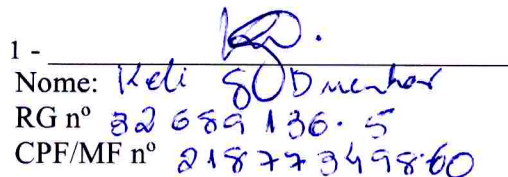 1 -
Nome: Keli
RG nº 32 689 136-5
CPF/MF nº 218773498-60